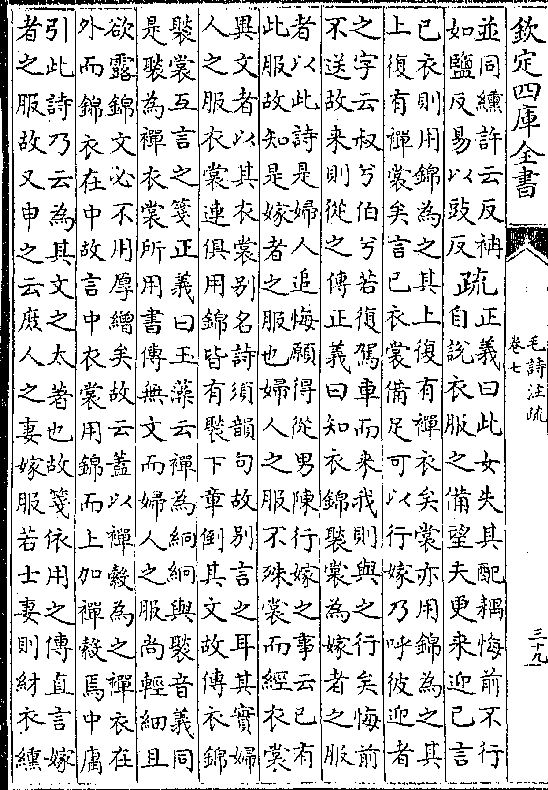 欽定四庫全書
毛詩注疏
卷七
三十九
並同纁許云反衻
如鹽反易以豉反
疏
正義曰此女失其配耦悔前不行
自說衣服之備望夫更來迎已言
已衣則用錦為之其上復有襌衣矣裳亦用錦為之其
上復有襌裳矣言已衣裳備足可以行嫁乃呼彼迎者
之字云叔兮伯兮若復駕車而來我則與之行矣悔前
不送故來則從之傳正義曰知衣錦褧裳為嫁者之服
者以此詩是婦人追悔願得從男陳行嫁之事云已有
此服故知是嫁者之服也婦人之服不殊裳而經衣裳
異文者以其衣裳别名詩須韻句故别言之耳其實婦
人之服衣裳連俱用錦皆有褧下章倒其文故傳衣錦
褧裳互言之箋正義曰玉藻云襌為絅絅與褧音義同
是褧為襌衣裳所用書傳無文而婦人之服尚輕細且
欲露錦文必不用厚繒矣故云蓋以襌縠為之襌衣在
外而錦衣在中故言中衣裳用錦而上加襌縠焉中庸
引此詩乃云為其文之太著也故箋依用之傳直言嫁
者之服故又申之云庶人之妻嫁服若士妻則紂衣纁